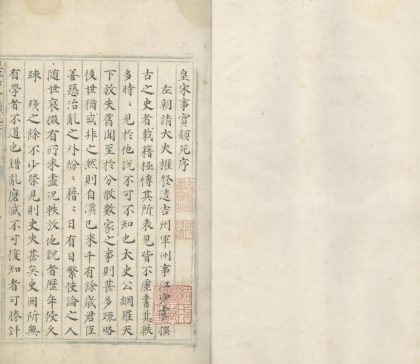 皇宋事寶類苑序
左朝請大夫權發遣吉州軍州事江少虞撰
古之史者載籍極博其所表見皆不虛書其軼
多時時見於他說不可不知也太史公網羅天
下放失舊聞至於分散數家之事則甚多疏略
後世猶或非之然則自漢已來千有餘歲君臣
善惡治亂之外紛紛籍籍日有日繁使論之人
隨世裒掇有所未盡況軼說他說者歷年侵久
踈殘之除不少槩見則史失甚矣史闕所無
有學者不道也錯亂磨滅不可復知者可勝計